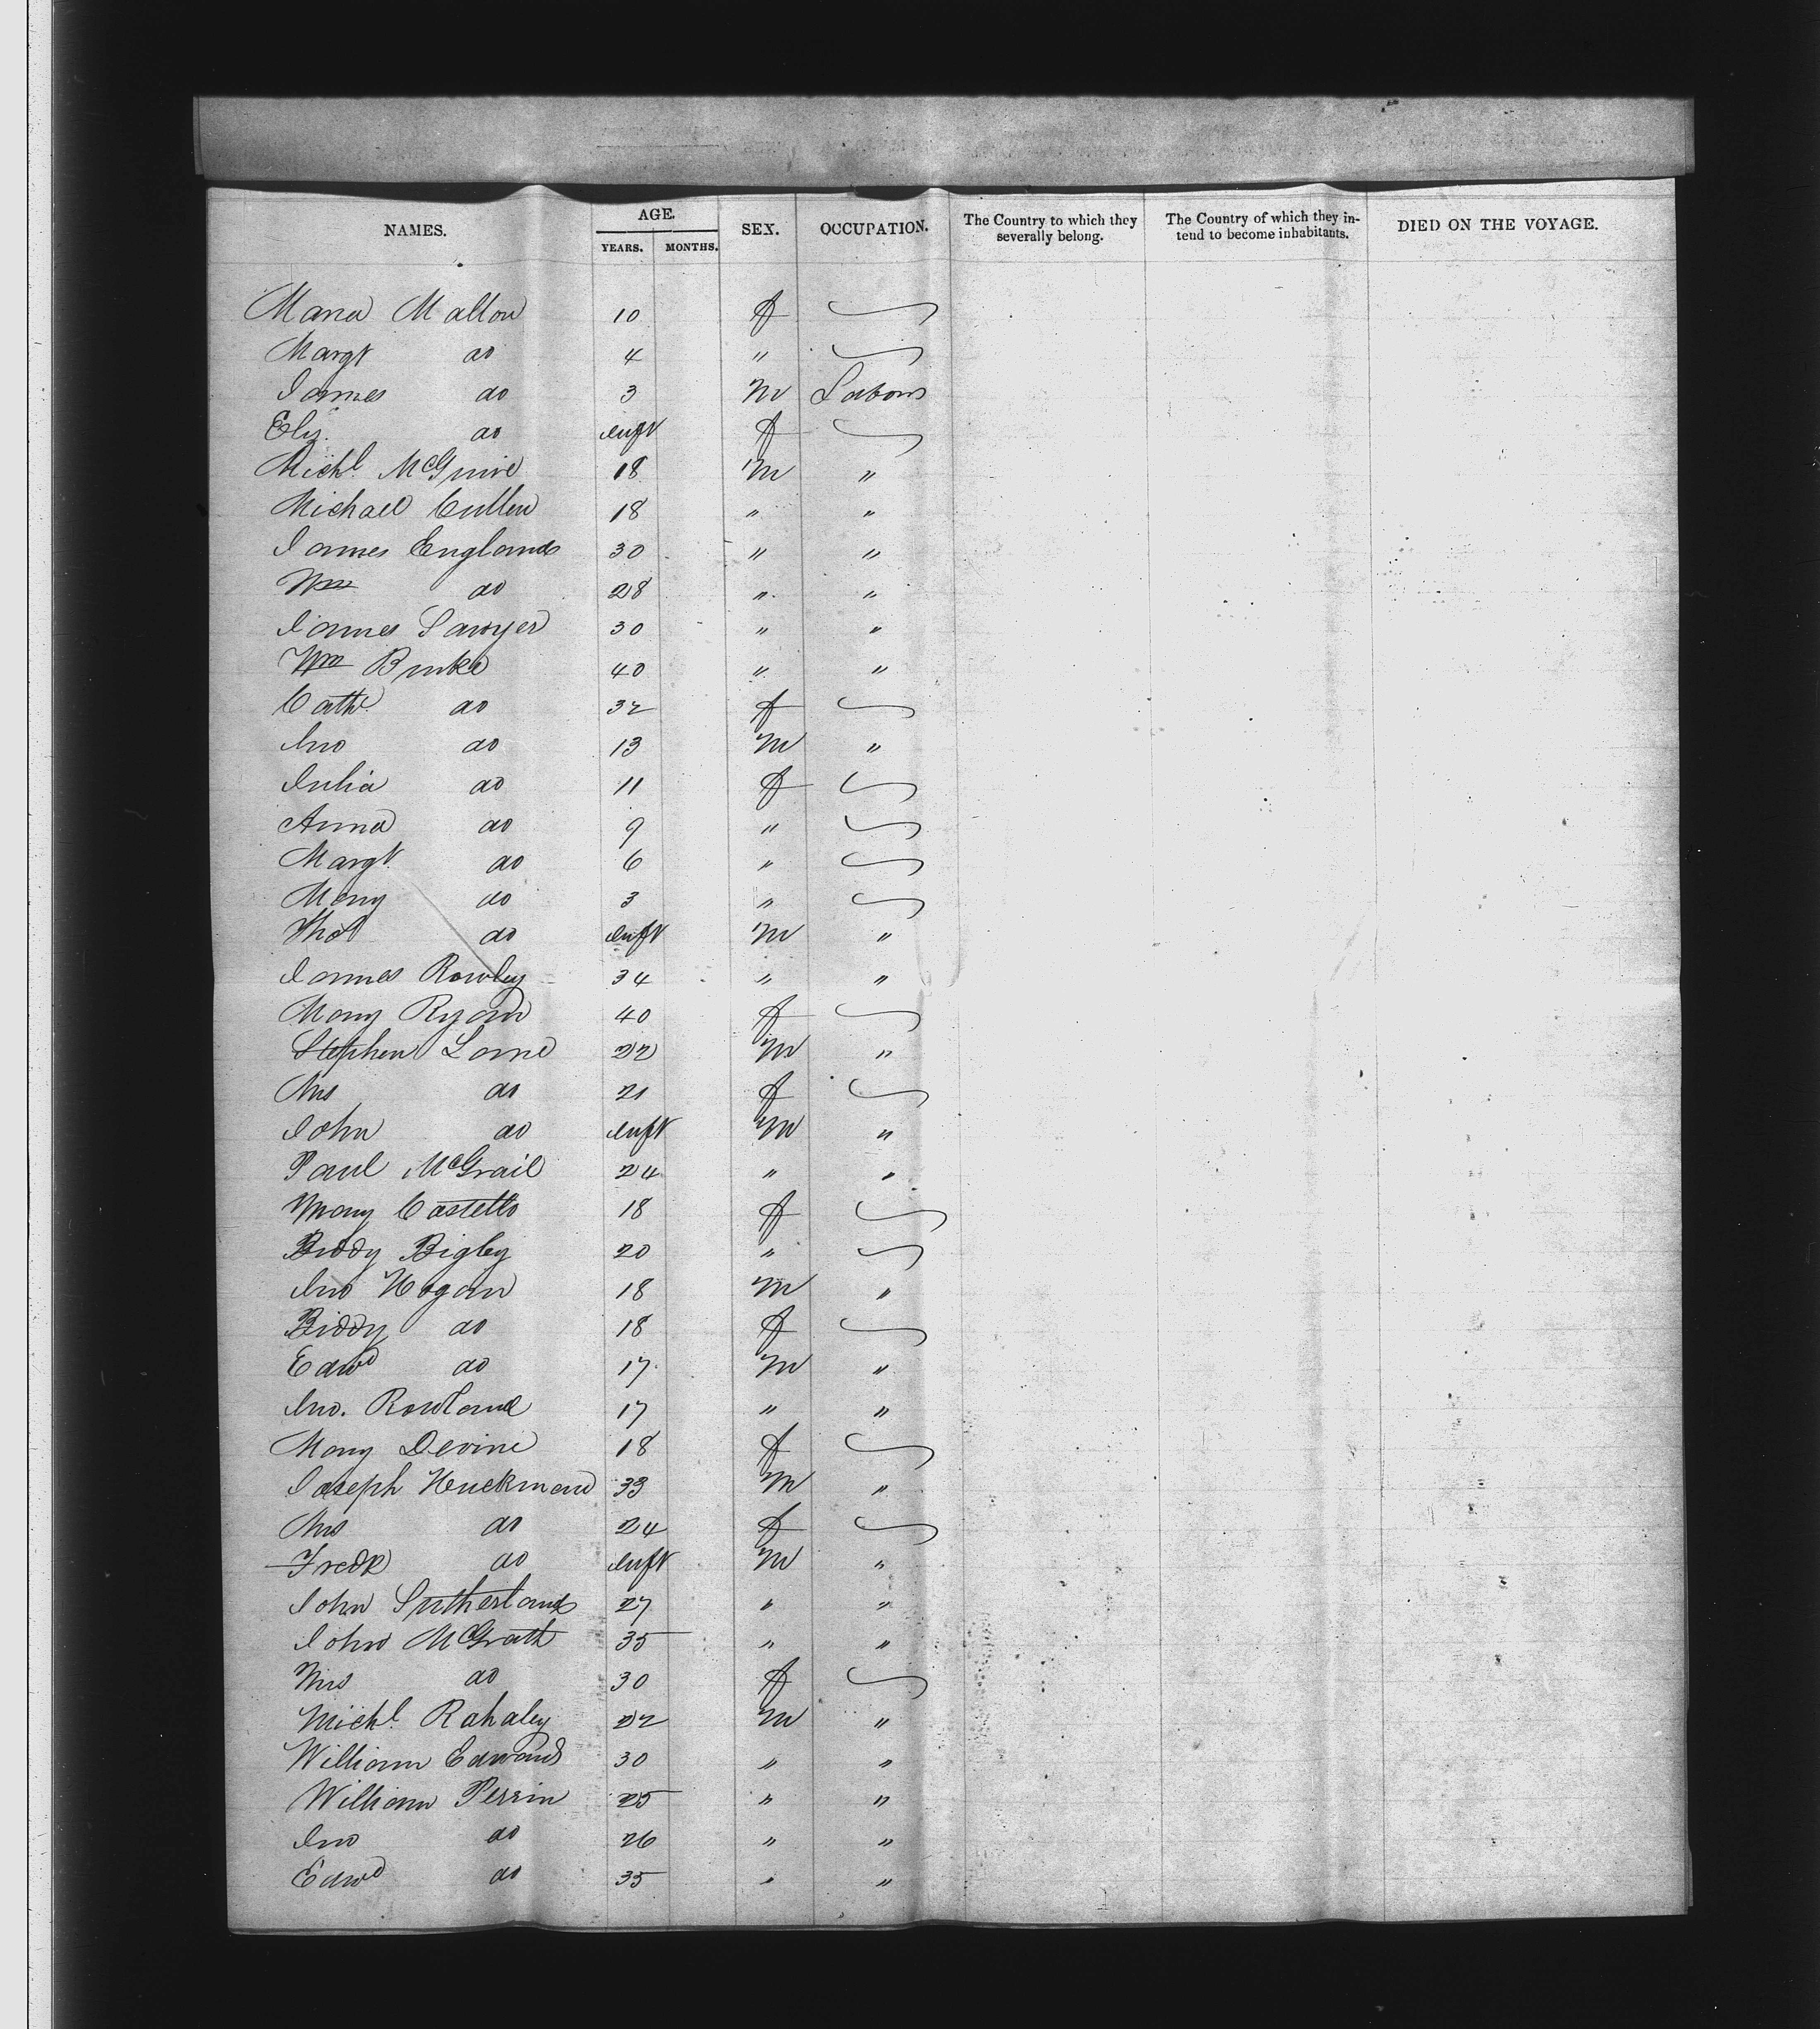 NAMES. AGE. SEX. OCCUPATION. The Country to which they severally belong. The Country of which they intend to become inhabitants. DIED ON THE VOYAGE.
YEARS. MONTHS.
Maria Mallon 10 f
Margt do 4 "
James do 3 m Labour
Eliz. do Inft f
Michl. McGuire 18 m "
Michael Cullen 18 " "
James England 30 " "
Wm do 28 " "
James Sawyer 30 " "
Wm Burke 40 " "
Cathe do 32 f
Jno do 13 m "
Julia do 11 f
Anna do 9 "
Margt. do 6 "
Mary do 3 "
Thos do Inft m "
James Rowley 34 " "
Mary Ryan 40 f
Stephen Lane 22 m "
Mrs do 21 f
John do Inft m "
Paul McGrail 24 " "
Mary Castello 18 f
Biddy Bigley 20 "
Jno Hogan 18 m "
Biddy do 18 f
Edwd do 17 m "
Jno. Rowland 17 " "
Mary Devine 18 f
Joseph Huckman 33 m "
Mrs do 24 f
Fredk do Inft m "
John Sutherland 27 " "
John McGrath 35 " "
Mrs do 30 f
Michl. Rahaley 22 m "
William Edwards 30 " "
William Perrin 25 " "
Jno do 26 " "
Edwd do 35 " "